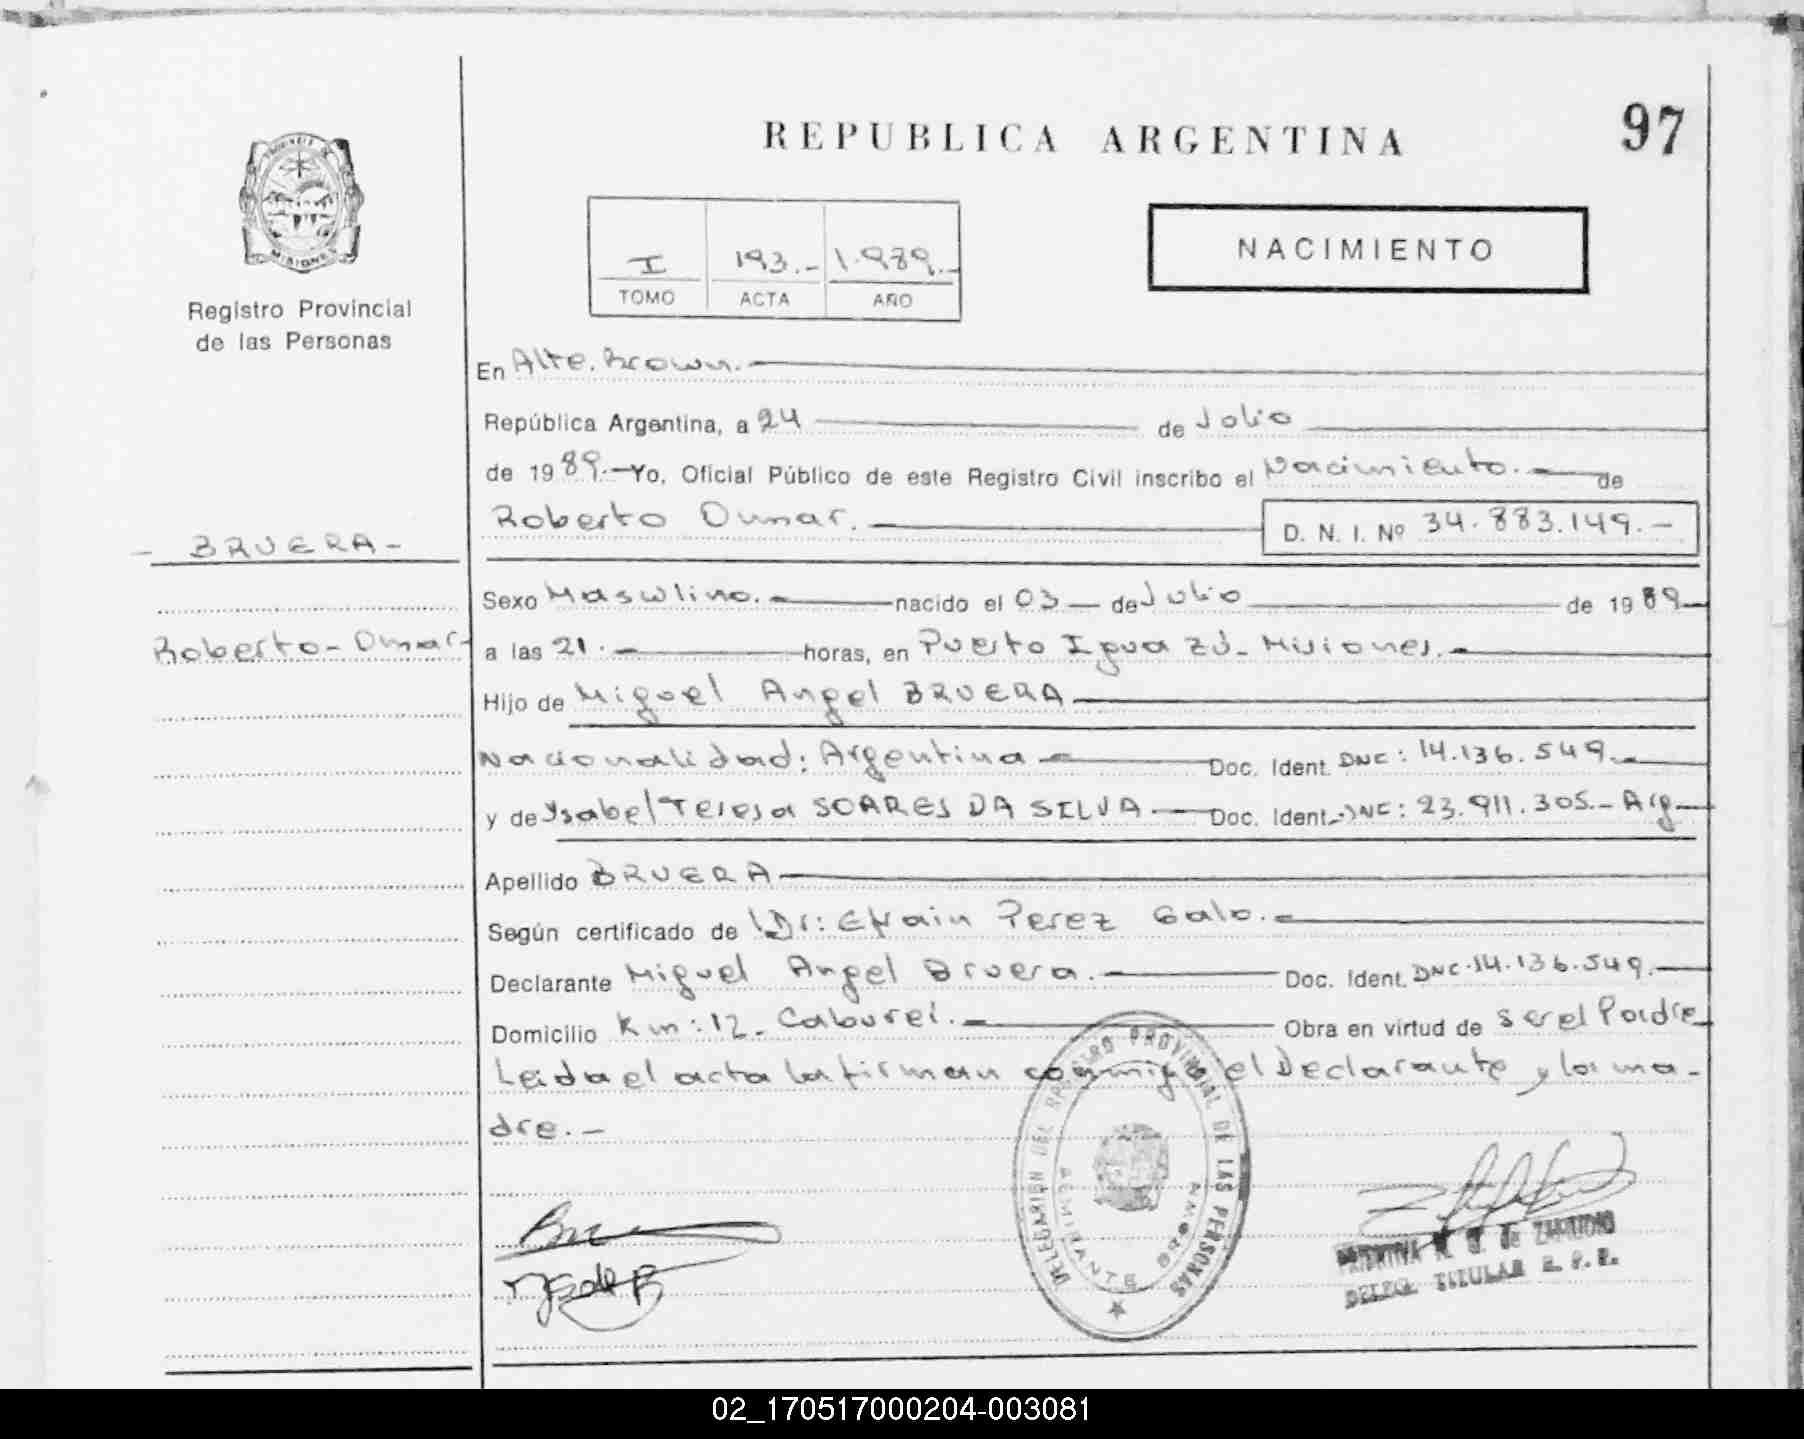 97
REPUBLICA ARGENTINA
PROVINCIA DE
MISIONES
Registro Provincial
de las Personas
I 193.- 1.989.-
TOMO ACTA AÑO
NACIMIENTO
En Alte. Brown.
República Argentina, a 24 de Julio
de 1989.- Yo, Oficial Público de este Registro Civil inscribo el Nacimiento. de
Roberto Oumar. D. N. I. Nº 34.883.149.-
- BRUERA -
Roberto - Omar
Sexo Masculino. nacido el 03 de Julio de 1989
a las 21. horas, en Puerto Iguazú - Misiones.
Hijo de Miguel Angel BRUERA
Nacionalidad: Argentina Doc. Ident. DNI: 14.136.549.
y de Ysabel Teresa SOARES DA SILVA Doc. Ident. DNI: 23.911.305.- Arg
Apellido BRUERA
Según certificado de Dr: Efrain Perez Galo.
Declarante Miguel Angel Bruera. Doc. Ident. DNI. 14.136.549.
Domicilio Km: 12 - Caburei. Obra en virtud de ser el Padre
Leida el acta la firman conmigo el Declarante y la ma-
dre.-
DELEGACION DEL REGISTRO PROVINCIAL DE LAS PERSONAS
ALMIRANTE BROWN
de ZAMUDIO
DELEG. TITULAR R. P. P.
02_170517000204-003081